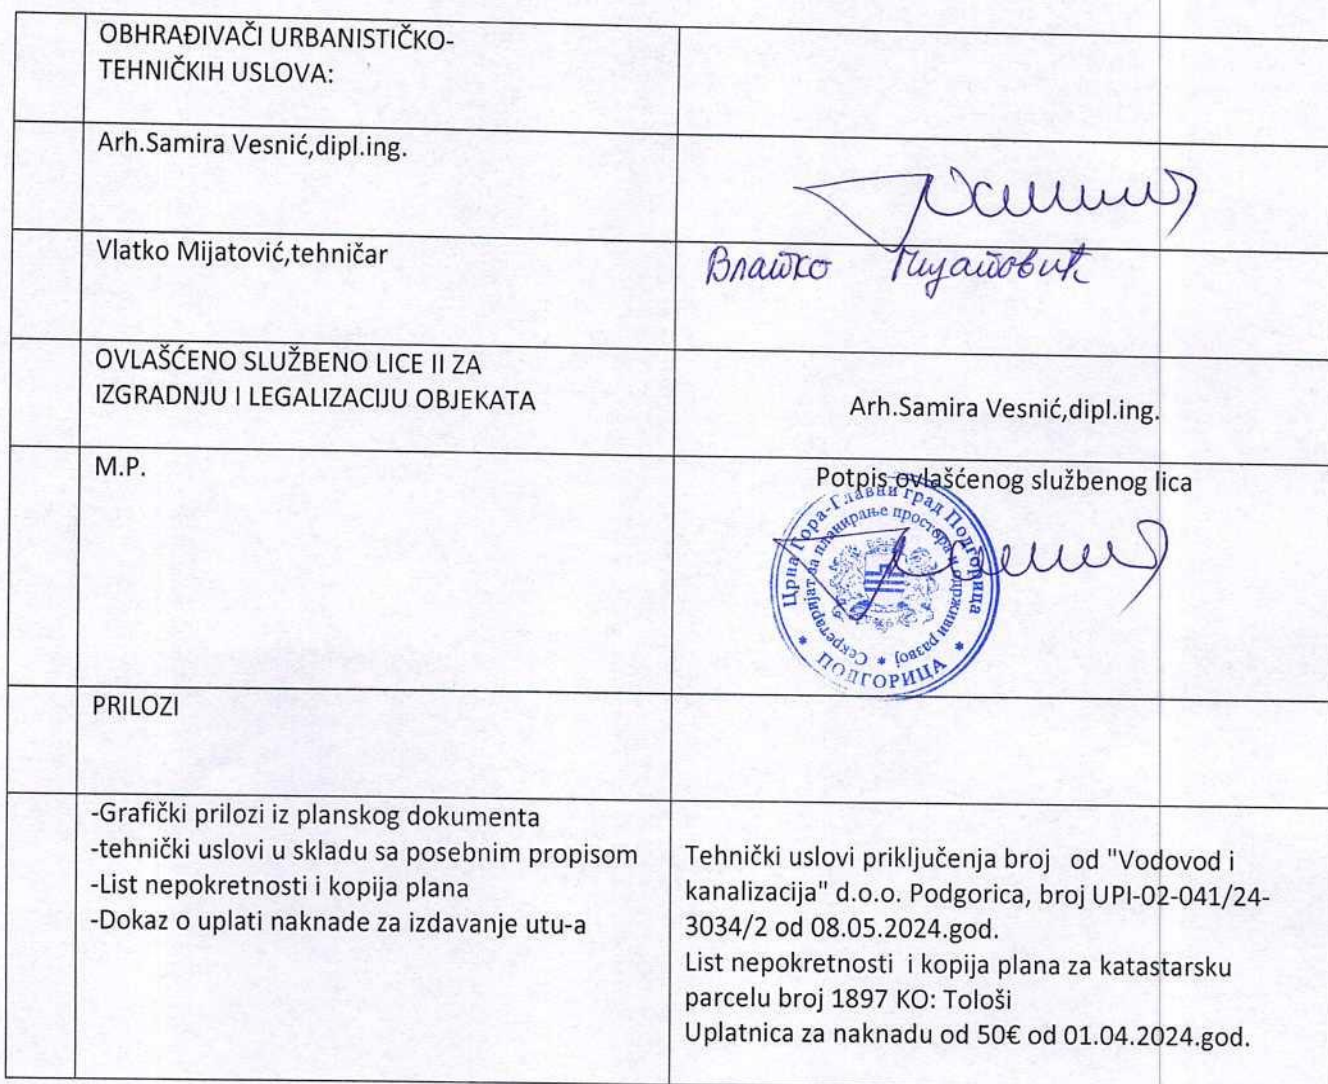 OBHRAĐIVAČI URBANISTIČKO-
TEHNIČKIH USLOVA:
Arh.Samira Vesnić,dipl.ing.
Vlatko Mijatović,tehničar
Влатко Мијатовић
OVLAŠĆENO SLUŽBENO LICE II ZA
IZGRADNJU I LEGALIZACIJU OBJEKATA
Arh.Samira Vesnić,dipl.ing.
M.P.
Potpis ovlašćenog službenog lica
Црна Гора-Главни град Подгорица
Секретаријат за планирање простора и одрживи развој
ПОДГОРИЦА
PRILOZI
-Grafički prilozi iz planskog dokumenta
-tehnički uslovi u skladu sa posebnim propisom
-List nepokretnosti i kopija plana
-Dokaz o uplati naknade za izdavanje utu-a
Tehnički uslovi priključenja broj od "Vodovod i
kanalizacija" d.o.o. Podgorica, broj UPI-02-041/24-
3034/2 od 08.05.2024.god.
List nepokretnosti i kopija plana za katastarsku
parcelu broj 1897 KO: Tološi
Uplatnica za naknadu od 50€ od 01.04.2024.god.